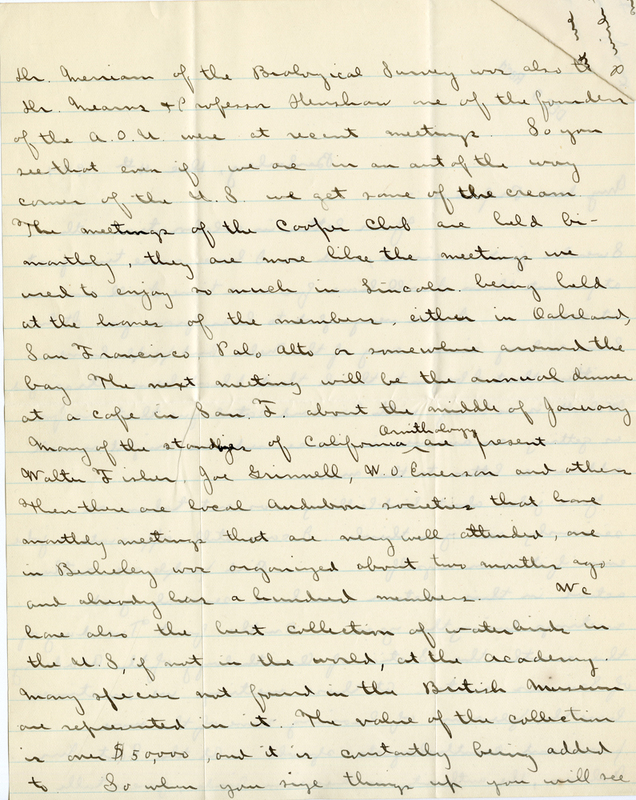 Dr. Merriam of the Biological Survey was also
Dr. Mearns & Professor Henshaw one of the founders
of the A.O.U. were at recent meetings. So you
see that even if we are in an out of the way
corner of the U.S. we get some of the cream.
The meetings of the Cooper Club are held bi-
monthly, they are more like the meetings we
used to enjoy so much in Lincoln. being held
at the homes of the members, either in Oakland,
San Francisco, Palo Alto or somewhere around the
bay. The next meeting will be the annual dinner
at a cafe in San. F. about the middle of January
Ornithology
Many of the standbyes of California are present
Walter Fisher. Joe Grinnell, W.O. Emerson and others
Then there are local Audubon societies that have
monthly meetings that are very well attended, one
in Berkeley was organized about two months ago
and already has a hundred members. We
have also the best collection of waterbirds in
the U.S, if not in the world, at the Academy.
Many species not found in the British Museum
are represented in it. The value of the collection
is over $50,000, and it is constantly being added
to So when you size things up you will see